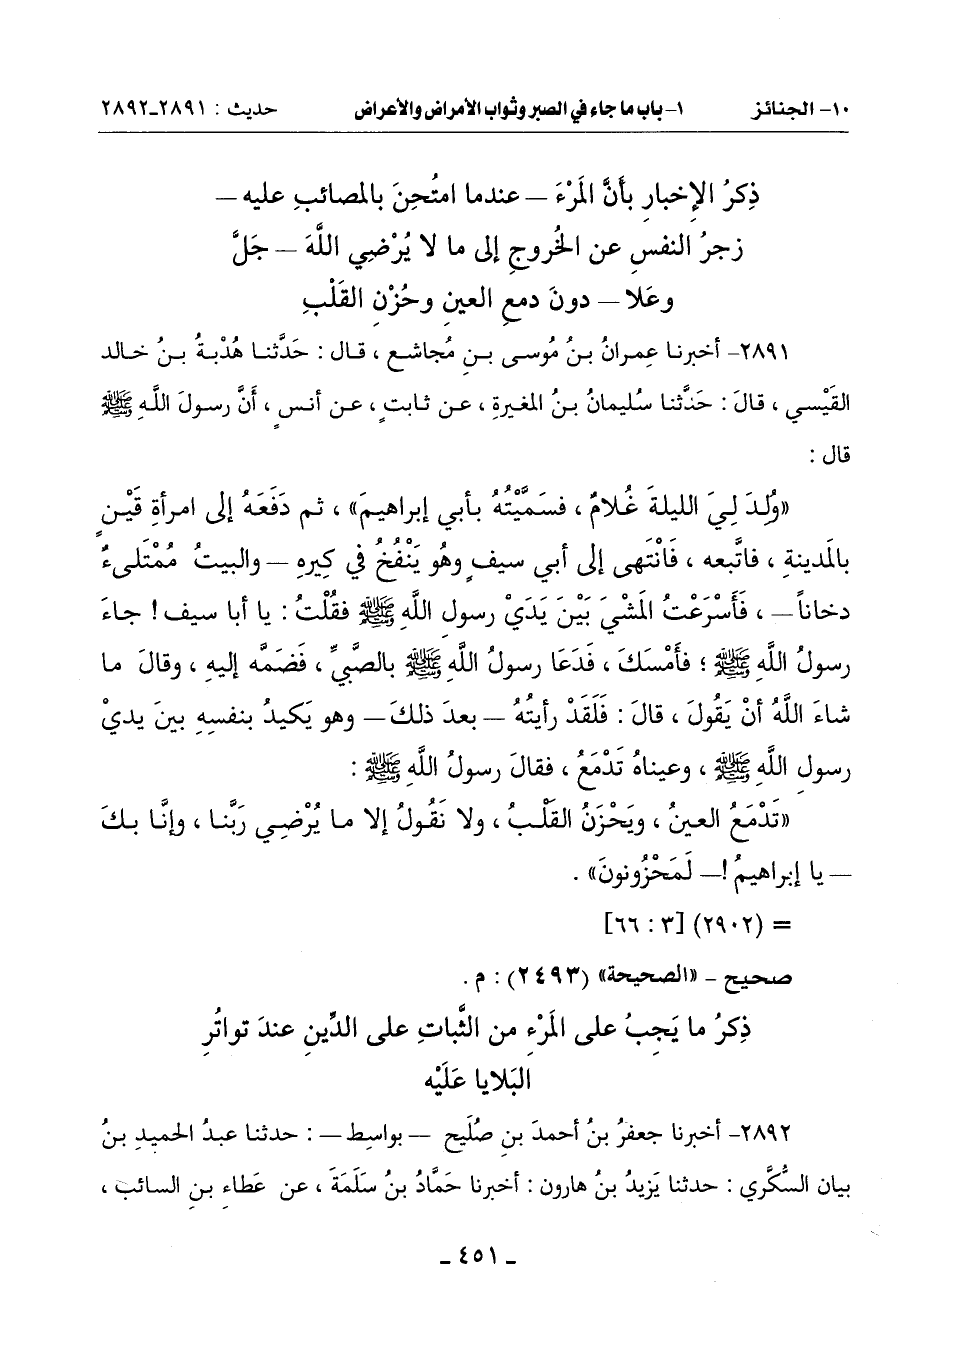 ١٠- الجنائز ١- باب ما جاء في الصبر وثواب الأمراض والأعراض حديث : ٢٨٩١-٢٨٩٢
ذِكرُ الإخبارِ بأنَّ المَرْءَ – عندما امتُحِنَ بالمصائبِ عليه –
زجرُ النفسِ عن الخُروجِ إلى ما لا يُرْضِي اللَّهَ – جَلَّ
وعَلا – دونَ دمعِ العينِ وحُزْنِ القَلْبِ
٢٨٩١- أخبرنا عِمرانُ بنُ مُوسى بنِ مُجاشعٍ ، قال : حَدَّثنا هُدْبةُ بنُ خالد
القَيْسي ، قالَ : حَدَّثنا سُليمانُ بنُ المغيرةِ ، عن ثابتٍ ، عن أنسٍ ، أنَّ رسولَ اللَّهِ ﷺ
قال :
«وُلِدَ لِيَ الليلةَ غُلامٌ ، فسَمَّيْتُهُ بأبي إبراهيمَ» ، ثم دَفَعَهُ إلى امرأةِ قَيْنٍ
بالمَدينةِ ، فاتَّبعه ، فَانْتَهى إلى أبي سيفٍ وهُو يَنْفُخُ في كِيرِهِ – والبيتُ مُمْتَلىءٌ
دخاناً – ، فَأَسْرَعْتُ المَشْيَ بَيْنَ يَدَيْ رسولِ اللَّهِ ﷺ فقُلْتُ : يا أبا سيف ! جاءَ
رسولُ اللَّهِ ﷺ ؛ فأَمْسَكَ ، فَدَعَا رسولُ اللَّهِ ﷺ بالصَّبيِّ ، فَضَمَّه إليه ، وقالَ ما
شاءَ اللَّهُ أنْ يَقُولَ ، قالَ : فَلَقَدْ رأيتُهُ – بعدَ ذلكَ – وهو يَكيدُ بنفسِهِ بينَ يديْ
رسولِ اللَّهِ ﷺ ، وعيناهُ تَدْمَعُ ، فقالَ رسولُ اللَّهِ ﷺ :
«تَدْمَعُ العينُ ، ويَحْزَنُ القَلْبُ ، ولا نَقُولُ إلا ما يُرْضِي رَبَّنا ، وإنَّا بكَ
– يا إبراهيمُ ! – لَمَحْزُونونَ» .
= (٢٩٠٢) [٣ : ٦٦]
صحيح - «الصحيحة» (٢٤٩٣) : م .
ذِكرُ ما يَجِبُ على المَرْءِ من الثَّباتِ على الدِّينِ عندَ تواتُرِ
البَلايا عَلَيْه
٢٨٩٢- أخبرنا جعفرُ بنُ أحمدَ بنِ صُلَيح – بواسِطٍ – : حدثنا عبدُ الحميدِ بنُ
بيان السُّكَّري : حدثنا يَزيدُ بنُ هارون : أخبرنا حَمَّادُ بنُ سَلَمَةَ ، عن عَطاءِ بنِ السائبِ ،
- ٤٥١ -